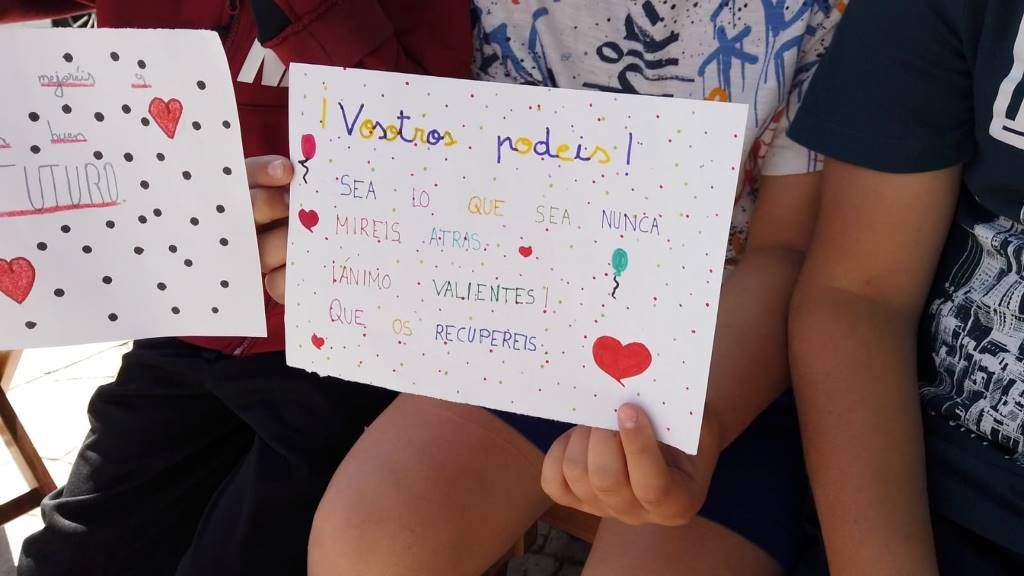 mejoréis y
buen
FUTURO
¡Vosotros podeis!
SEA LO QUE SEA NUNCA
MIREIS ATRAS.
¡ÁNIMO VALIENTES!
QUE OS RECUPEREIS.